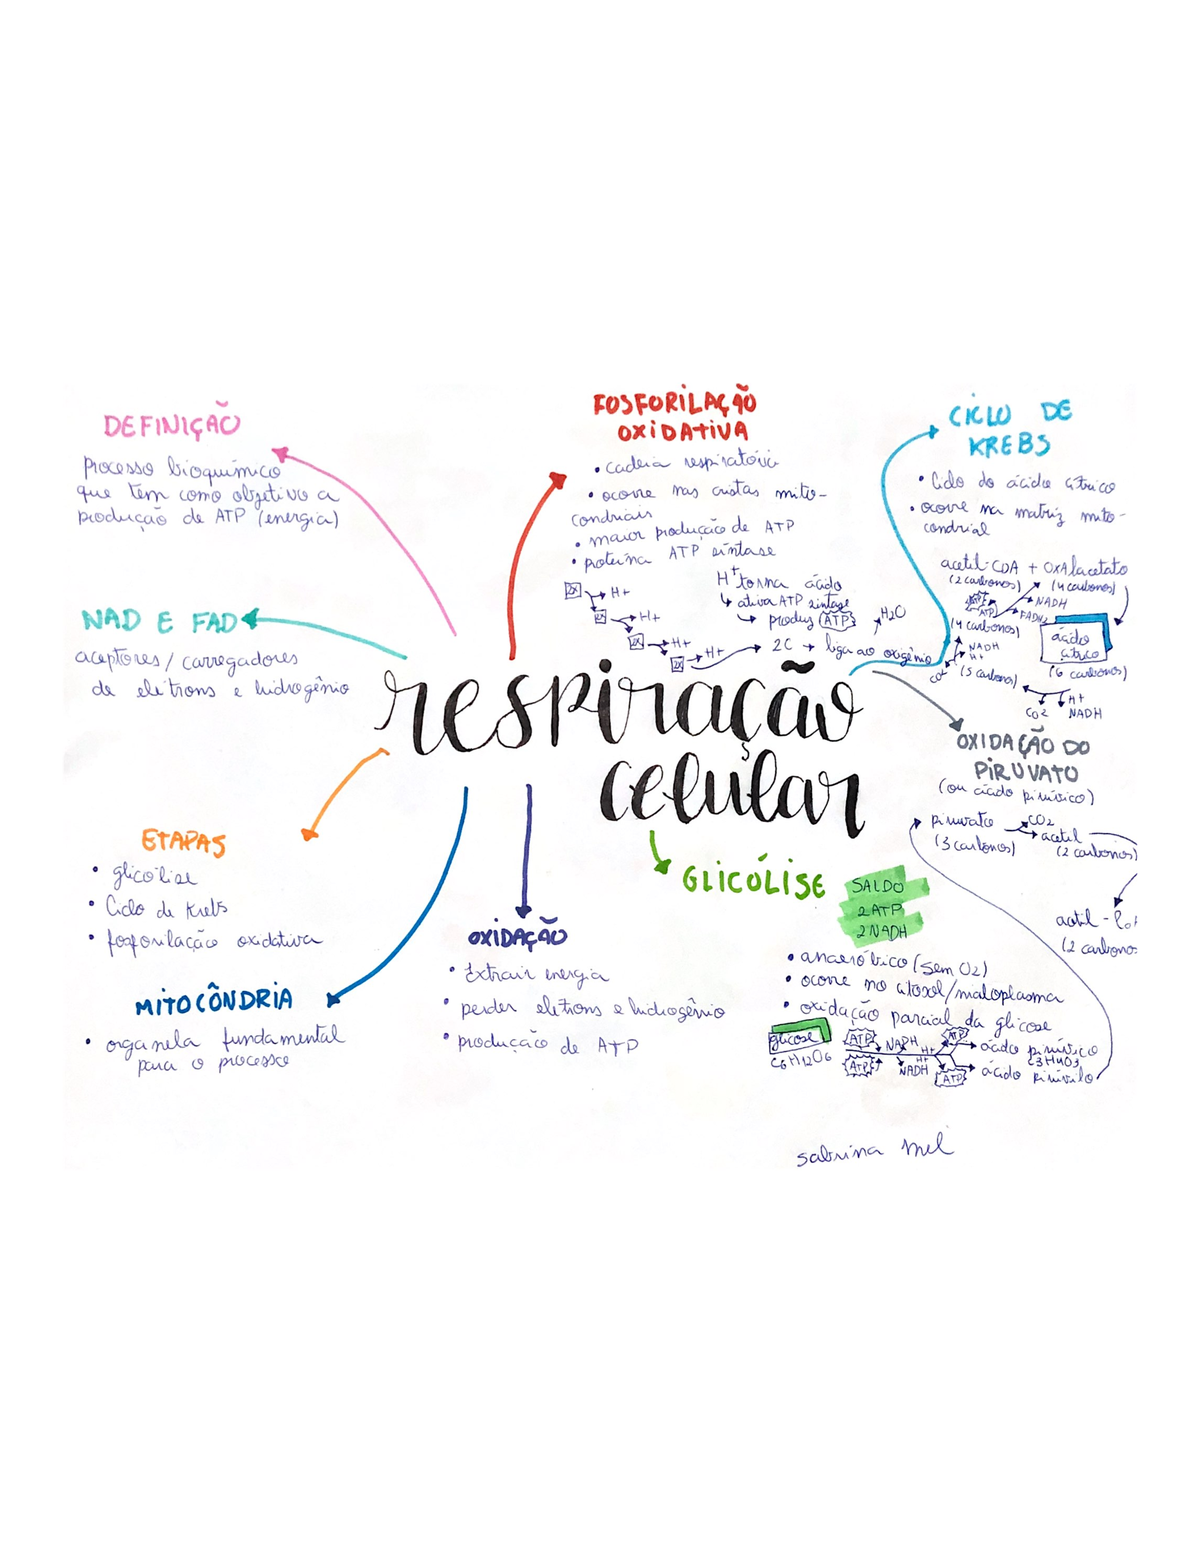 respiração
celular
DEFINIÇÃO
processo bioquímico
que tem como objetivo a
produção de ATP (energia)
NAD E FAD
aceptores/carregadores
de elétrons e hidrogênio
ETAPAS
• glicólise
• Ciclo de Krebs
• fosforilação oxidativa
MITOCÔNDRIA
• organela fundamental
para o processo
OXIDAÇÃO
• Extrair energia
• perder elétrons e hidrogênio
• produção de ATP
FOSFORILAÇÃO
OXIDATIVA
• cadeia respiratória
• ocorre nas cristas mito-
condriais
• maior produção de ATP
• proteína ATP sintase
H+ torna ácido
ativa ATP sintase
produz ATP
2X H+
H+
2X H+
2X H+
2C → liga ao oxigênio
H2O
CICLO DE
KREBS
• Ciclo do ácido cítrico
• ocorre na matriz mito-
condrial
acetil-COA + OXAlacetato
(2 carbonos) (4 carbonos)
ATP
NADH
FADH2
(4 carbonos)
ácido
cítrico
(6 carbonos)
NADH
H+
(5 carbonos)
CO2
H+
NADH
OXIDAÇÃO DO
PIRUVATO
(ou ácido pirúvico)
piruvato CO2
(3 carbonos) acetil
(2 carbonos)
acetil-
(2 carbono
GLICÓLISE
SALDO
2 ATP
2 NADH
• anaeróbico (sem O2)
• ocorre no citosol/
• oxidação parcial da glicose
glicose
C6H12O6
ATP NADH H+ ATP
ATP NADH H+ ATP
ácido pirúvico
C3H4O3
ácido
sabrina mel